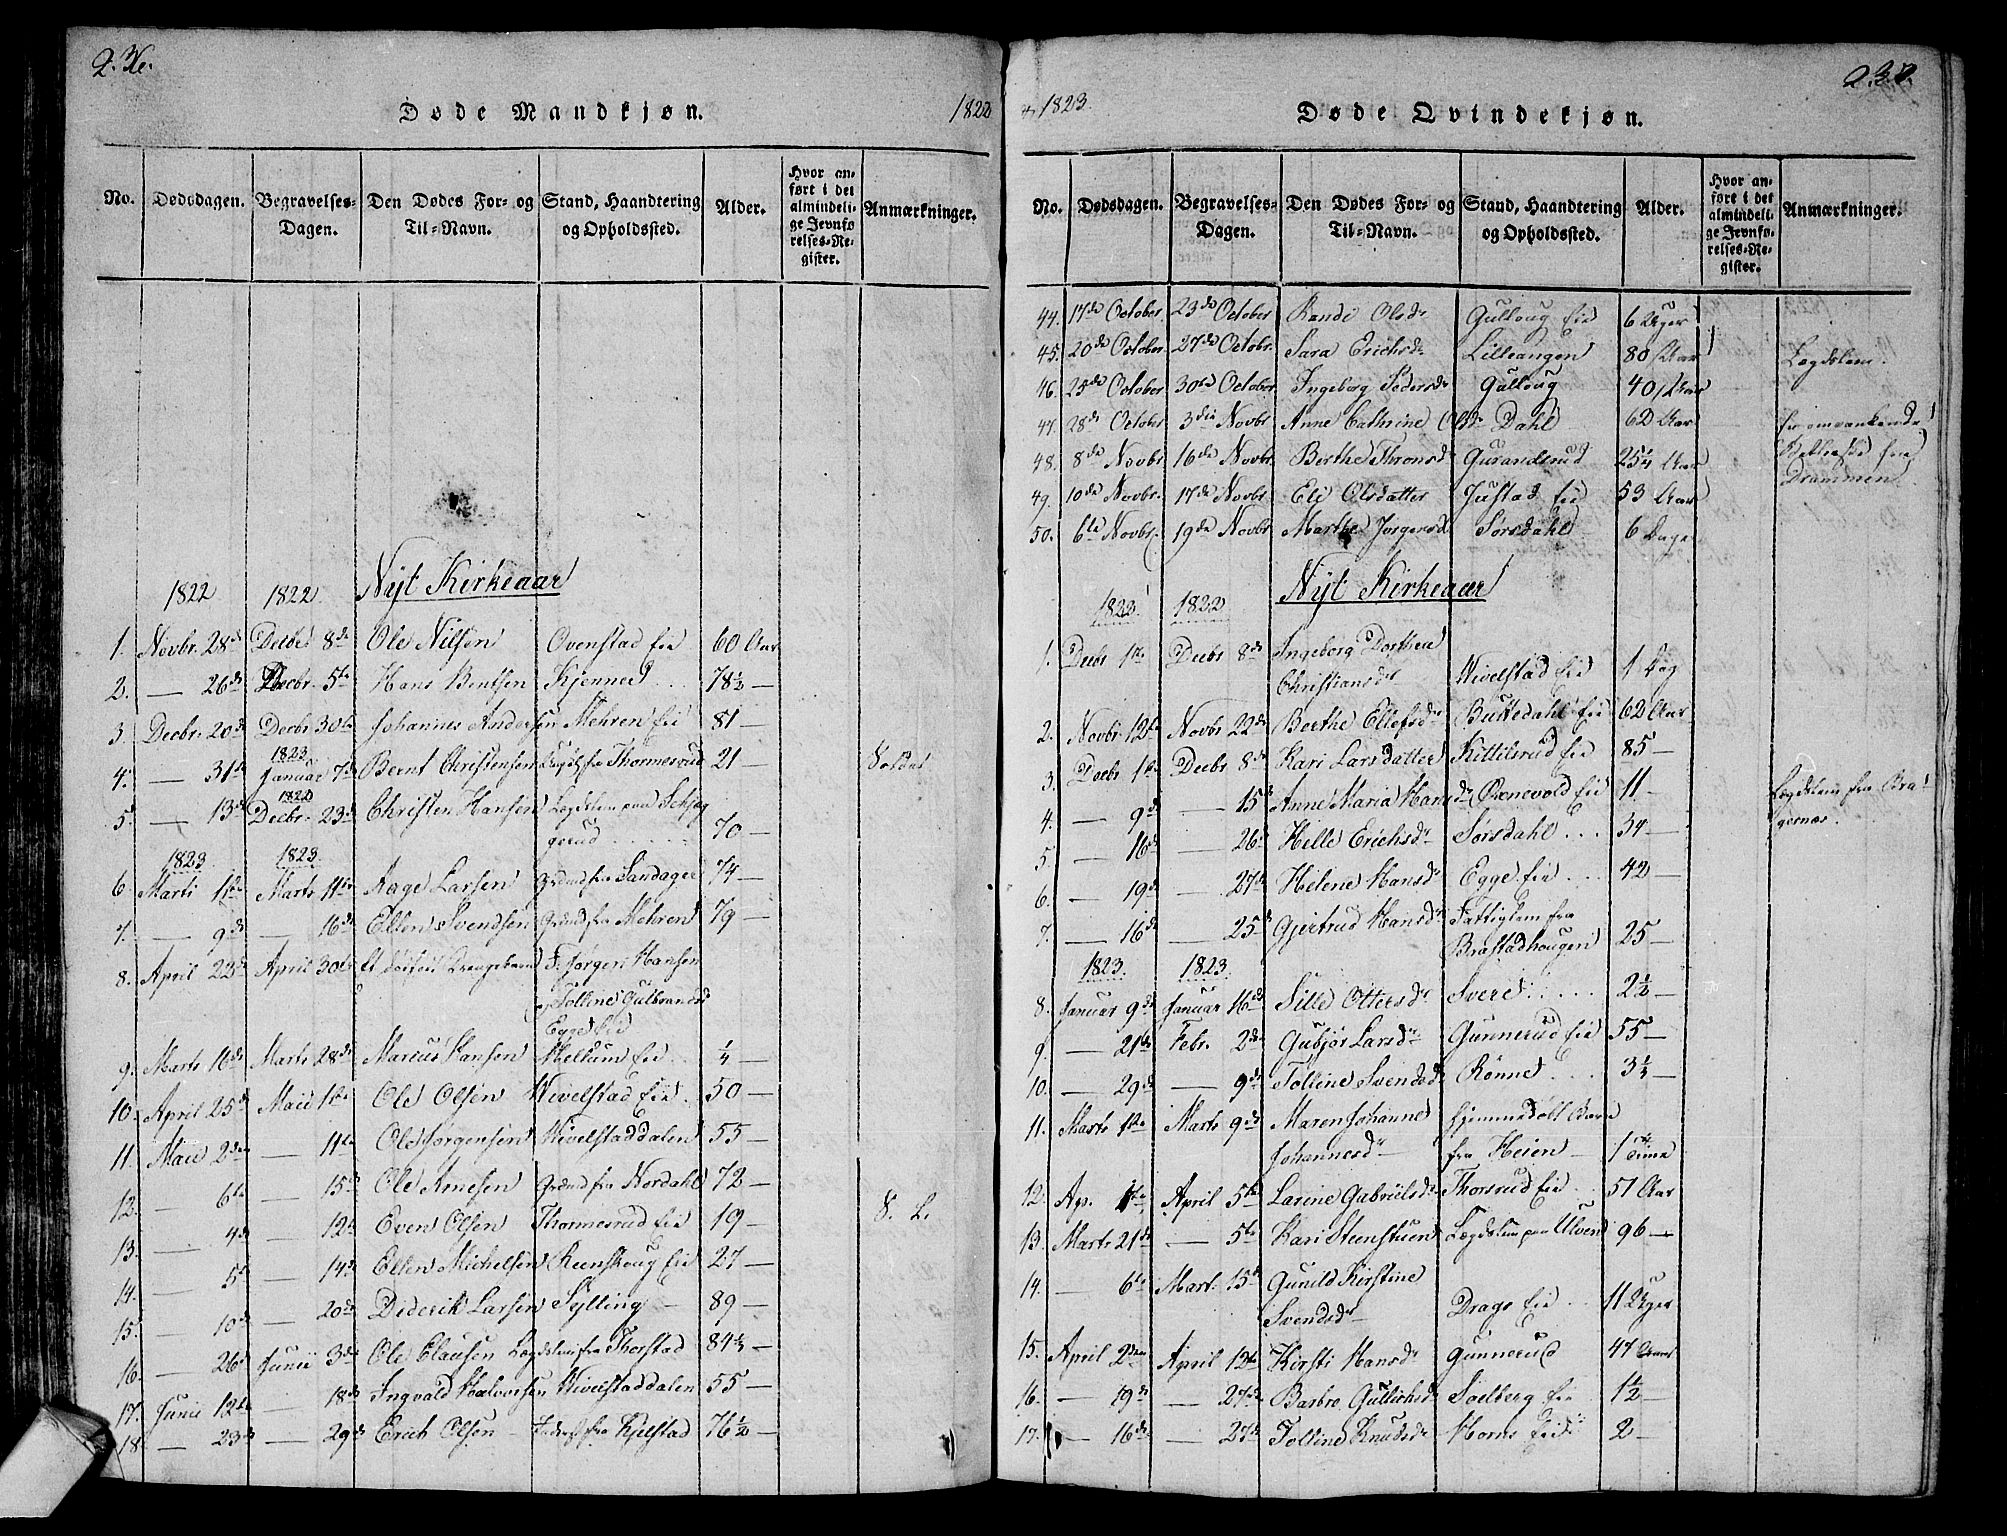 236.
Døde Mandkjøn.
1822
No. Dødsdagen. Begravelses-Dagen. Den Dødes For- og Til-Navn. Stand, Haandtering og Opholdssted. Alder. Hvor anført i det almindelige Jevnførelses-Register. Anmærkninger.
Nyt Kirkeaar
1822 1822
1. Novbr. 28de Decbr 8de Ole Nilsen Ovenstad Eie 60 Aar
2. — 26de Decbr. 5te Hans Bentsen Kjenner 78½ —
3. Decbr. 20de Decbr 30te Johannes Andersen Mehren Eie 81 —
1823
4. — 31te Januar 7de Bernt Christensen fra Thormesrud 21 — Soldat
1822
5. — 13de Decbr. 23de Christen Hansen Lægdslem paa
70 —
1823 1823
6. Marti 1te Marts 11te Aage Larsen fra Sandager 74 —
7. — 9de — 16de Ellen Svendsen fra Mehren 79 —
8. April 22de April 30te Et dødfød Drengebarn F. Jørgen Hansen
og Tolline Gulbrandsd
Egge Eie
9. Marts 16de Marts 28de Marius Hansen Mellum Eie ¼ —
10. April 25de Maii 1te Ole Olsen Wivelstad Eie 50 —
11. Maii 2den — 11te Ole Jørgensen Wivelstaddalen 55 —
12. — 6te — 15de Ole Arnesen fra Nordahl 72 —
13. — 4de — 12te Even Olsen Thormesrud Eie 19 — S. L.
14. — 5te — 14de Ellen Michelsen Reenskoug Eie 27 —
15. — 10de — 20de Dederik Larsen Sylling — 89 —
16. — 26de Junii 3de Ole Clausen Lægdslem fra Thorstad 84½ —
17. Junii 12te — 18de Ingvald Halvorsen Wivelstaddalen 55 —
18 — 23de — 29de Erich Olsen — fra Kjelstad 76½ —
1823
237.
Døde Qvindekjøn.
No. Dødsdagen. Begravelses-Dagen. Den Dødes For- og Til-Navn. Stand, Haandtering og Opholdssted. Alder. Hvor anført i det almindelige Jevnførelses-Register. Anmærkninger.
44. 17de October 23de October Rande Olsdr Gulloug Eie 6 Uger
45. 20de October 27de Octobr. Sara Erichsdr Lilleangen 80 Aar Lægdslem.
46. 25de October 30te October Ingeborg Pedersdr Gulloug 40 Aar
47. 28de October 3die Novbr Anne Cathrine Olsdr Dahl 62 Aar omvankende
48. 8de Novbr 16de Novbr. Berthe Thronsdr Gurandsrud 25¼ Aar fra
49. 10de Novbr. 17de Novbr Eli Olsdatter Justad Eie 53 Aar Drammen
50. 6te Novbr. 19de Novbr Marthe Jørgensd Sørsdahl 6 Dage
Nyt Kirkeaar
1822 1822
1. Decbr 1te Decbr 8de Ingeborg Dorthea
Christiansdr Wivelstad Eie 1 Dag
2. Novbr 12te Novbr 22de Berthe Ellefsdr Buttedahl Eie 62 Aar
3. Decbr 1te Decbr 8de Kari Larsdatter Kittilsrud Eie 85 —
4. — 9de — 15de Anne Maria Hansdr Ørnevold Eie 11 — Lægdslem fra Bra-
gernæs.
5. — 16de — 26de Helle Erichsdr Sørsdahl . . . 34 —
6. — 19de — 27de Helene Hansdr Egge Eie . . . 42 —
7. — 16de — 25de Gjertrud Hansdr Fattiglem fra
Brastadhougen 25 —
1823. 1823.
8. Januar 9de Januar 16de Sille Ottersdr Svere . . . . . 2½ —
9. — 21de Febr. 2den Gubjør Larsdr Gunnerud Eie 55 —
10. — 29de — 9de Tolline Svendsdr Rønne . . . . 3½ —
11. Marts 1te Marts 9de Maren Johanne hjemmedøbt Barn
Johannesdr — fra Heien — 1 Time
12. Ap. 1te April 5te Larine Gabrielsdr Thorsrud Eie . 51 Aar
13. Marts 21de — 5te Kari Steenstuen Lægdslem paa Ulven 96 —
14. — 6te Mart. 15de Gunild Kirstine
Svendsdr Drags Eie . . 11 Uger
15. April 2den April 12te Kirsti Hansdr Gunnerud 47
16. — 19de — 27de Barbro Gulliksdr Solberg Eie 1½ —
17. — 16de — 27de Tolline Knudsdr Horns Eie 2 —